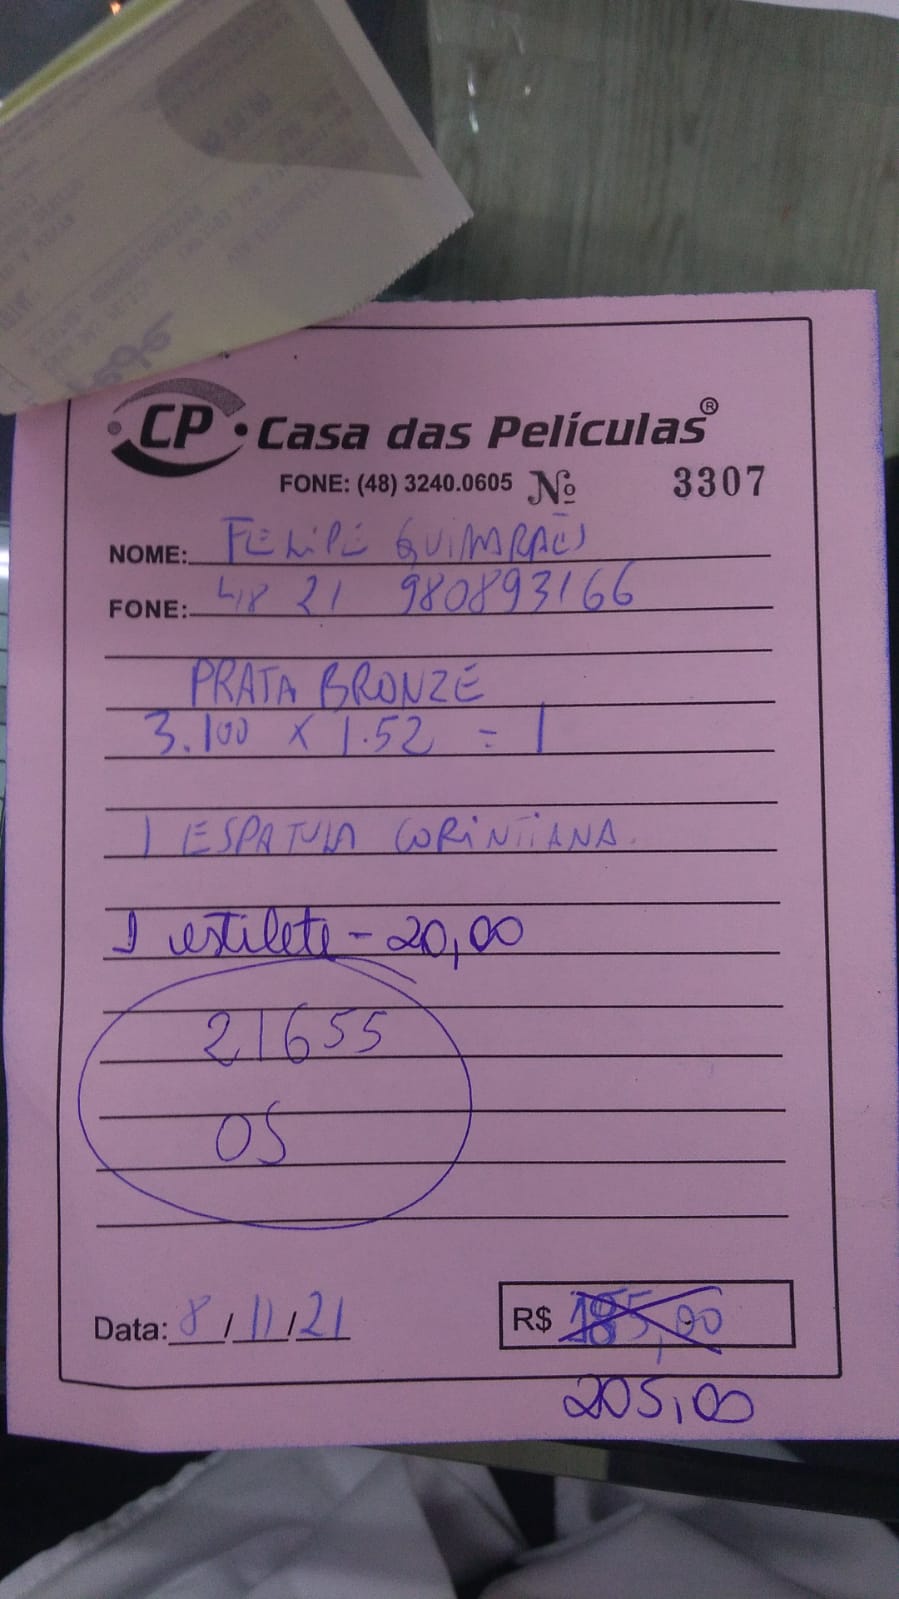 CP Casa das Películas®
FONE: (48) 3240.0605 Nº 3307
NOME: FELIPE GUIMARÃES
FONE: 48 21 980893166
PRATA BRONZE
3.100 x 1.52 = 1
1 ESPATULA CORINTIANA.
1 estilete - 20,00
21655
OS
Data: 8/11/21 R$ 185,00
205,00